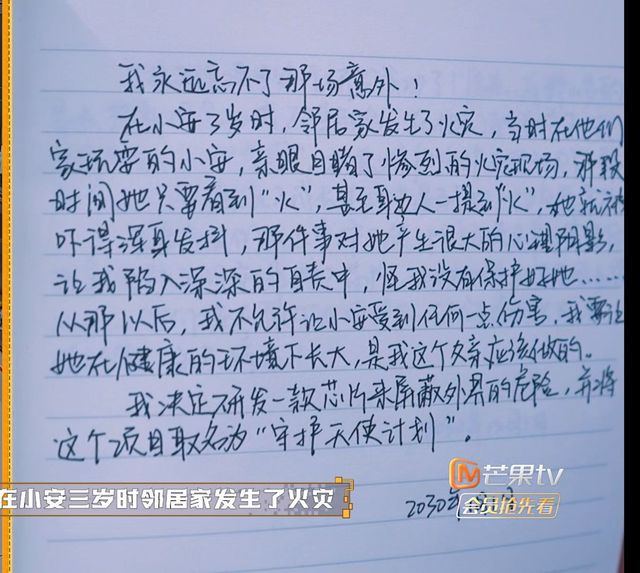 我永远忘不了那场意外！
在小安3岁时，邻居家发生了火灾，当时在他们
家玩耍的小安，亲眼目睹了惨烈的火灾现场，那段
时间她只要看到“火”，甚至身边人一提到“火”，她就被
吓得浑身发抖，那件事对她产生很大的心理阴影，
让我陷入深深的自责中，怪我没有保护好她……
从那以后，我不允许让小安受到任何一点伤害，我要让
她在健康的环境下长大，是我这个父亲应该做的。
我决定研发一款芯片来屏蔽外界的危险，并将
这个项目取名为“守护天使计划”。
芒果tv
在小安三岁时邻居家发生了火灾
会员抢先看
2030年